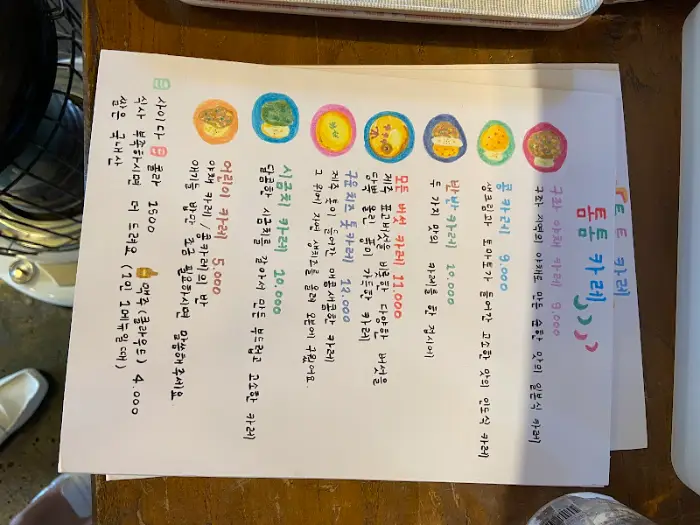 톰톰 카레
톰톰 카레
구좌 야채 카레 9,000
구좌 지역의 야채로 만든 순한 맛의 일본식 카레
콩 카레 9,000
생크림과 토마토가 들어간 고소한 맛의 인도식 카레
반반 카레 10,000
두 가지 맛의 카레를 한 접시에
모든 버섯 카레 11,000
제주 표고버섯을 비롯한 다양한 버섯을
듬뿍 올린 풍미 가득한 카레
구운 치즈 톳카레 12,000
제주 톳이 들어간 매콤새콤한 카레
그 위에 자연 생치즈를 올려 오븐에 구웠어요.
시금치 카레 10,000
달콤한 시금치를 갈아서 만든 부드럽고 고소한 카레
어린이 카레 5,000
야채 카레 / 콩카레의 반
애기들 밥만 조금 필요하시면 말씀해 주세요
사이다 콜라 1500 맥주(클라우드) 4,000
식사 부족하시면 더 드려요 (1인 1메뉴일 때)
쌀은 국내산